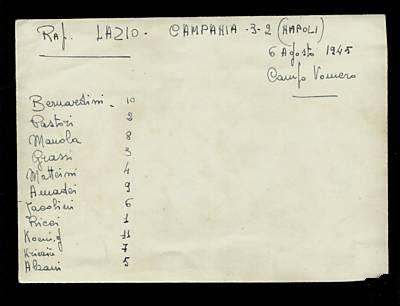 Raf. LAZIO - CAMPANIA - 3-2 (NAPOLI)
6 Agosto 1945
Campo Vomero
Bernardini - 10
Pastori 2
Manola 8
Grassi 3
Matteini 4
Amadei 9
Jacobini 6
Ricci 1
Koenig 11
Krieziu 7
Alzani 5